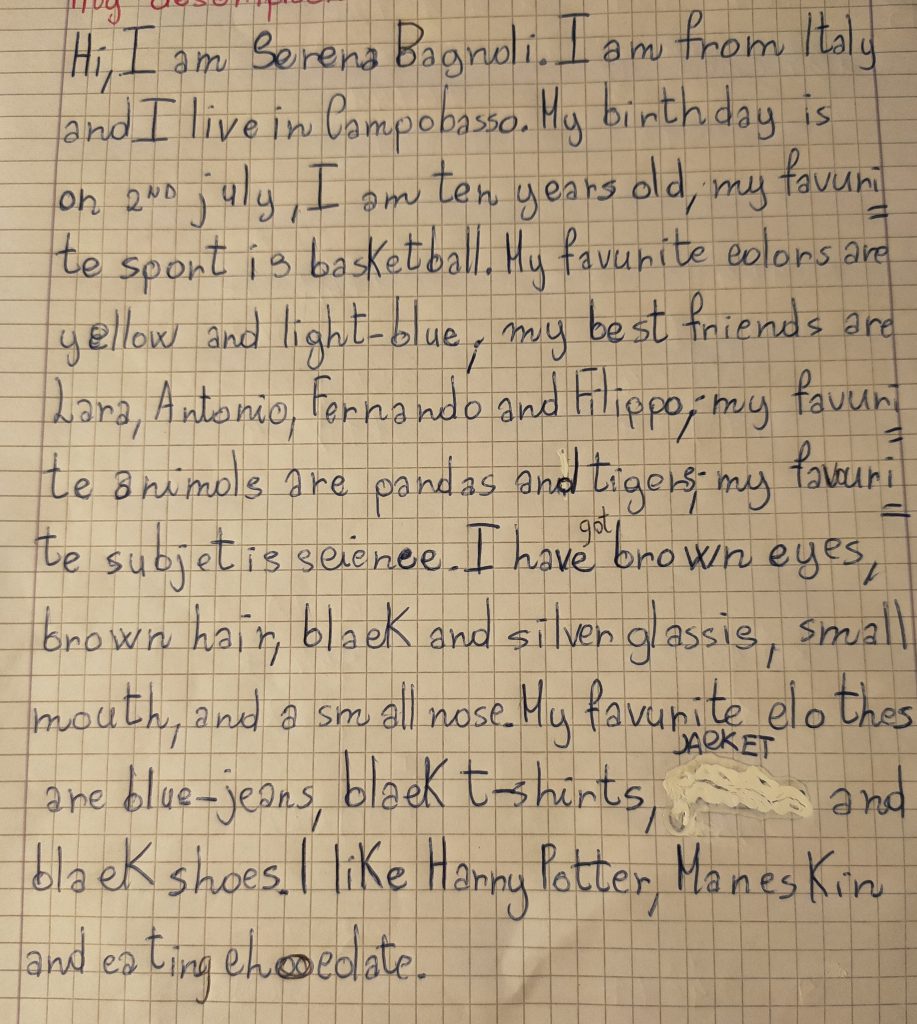 Hi, I am Serena Bagnoli. I am from Italy
and I live in Campobasso. My birthday is
on 2ND july, I am ten years old, my favuri
te sport is basketball. My favurite colors are
yellow and light-blue, my best friends are
Lara, Antonio, Fernando and Filippo, my favuri
te animals are pandas and tigers, my favouri
te subjet is science. I have got brown eyes,
brown hair, black and silver glassis, small
mouth, and a small nose. My favurite clothes
JACKET
are blue-jeans, black t-shirts, and
black shoes. I like Harry Potter, Maneskin
and eating chocolate.